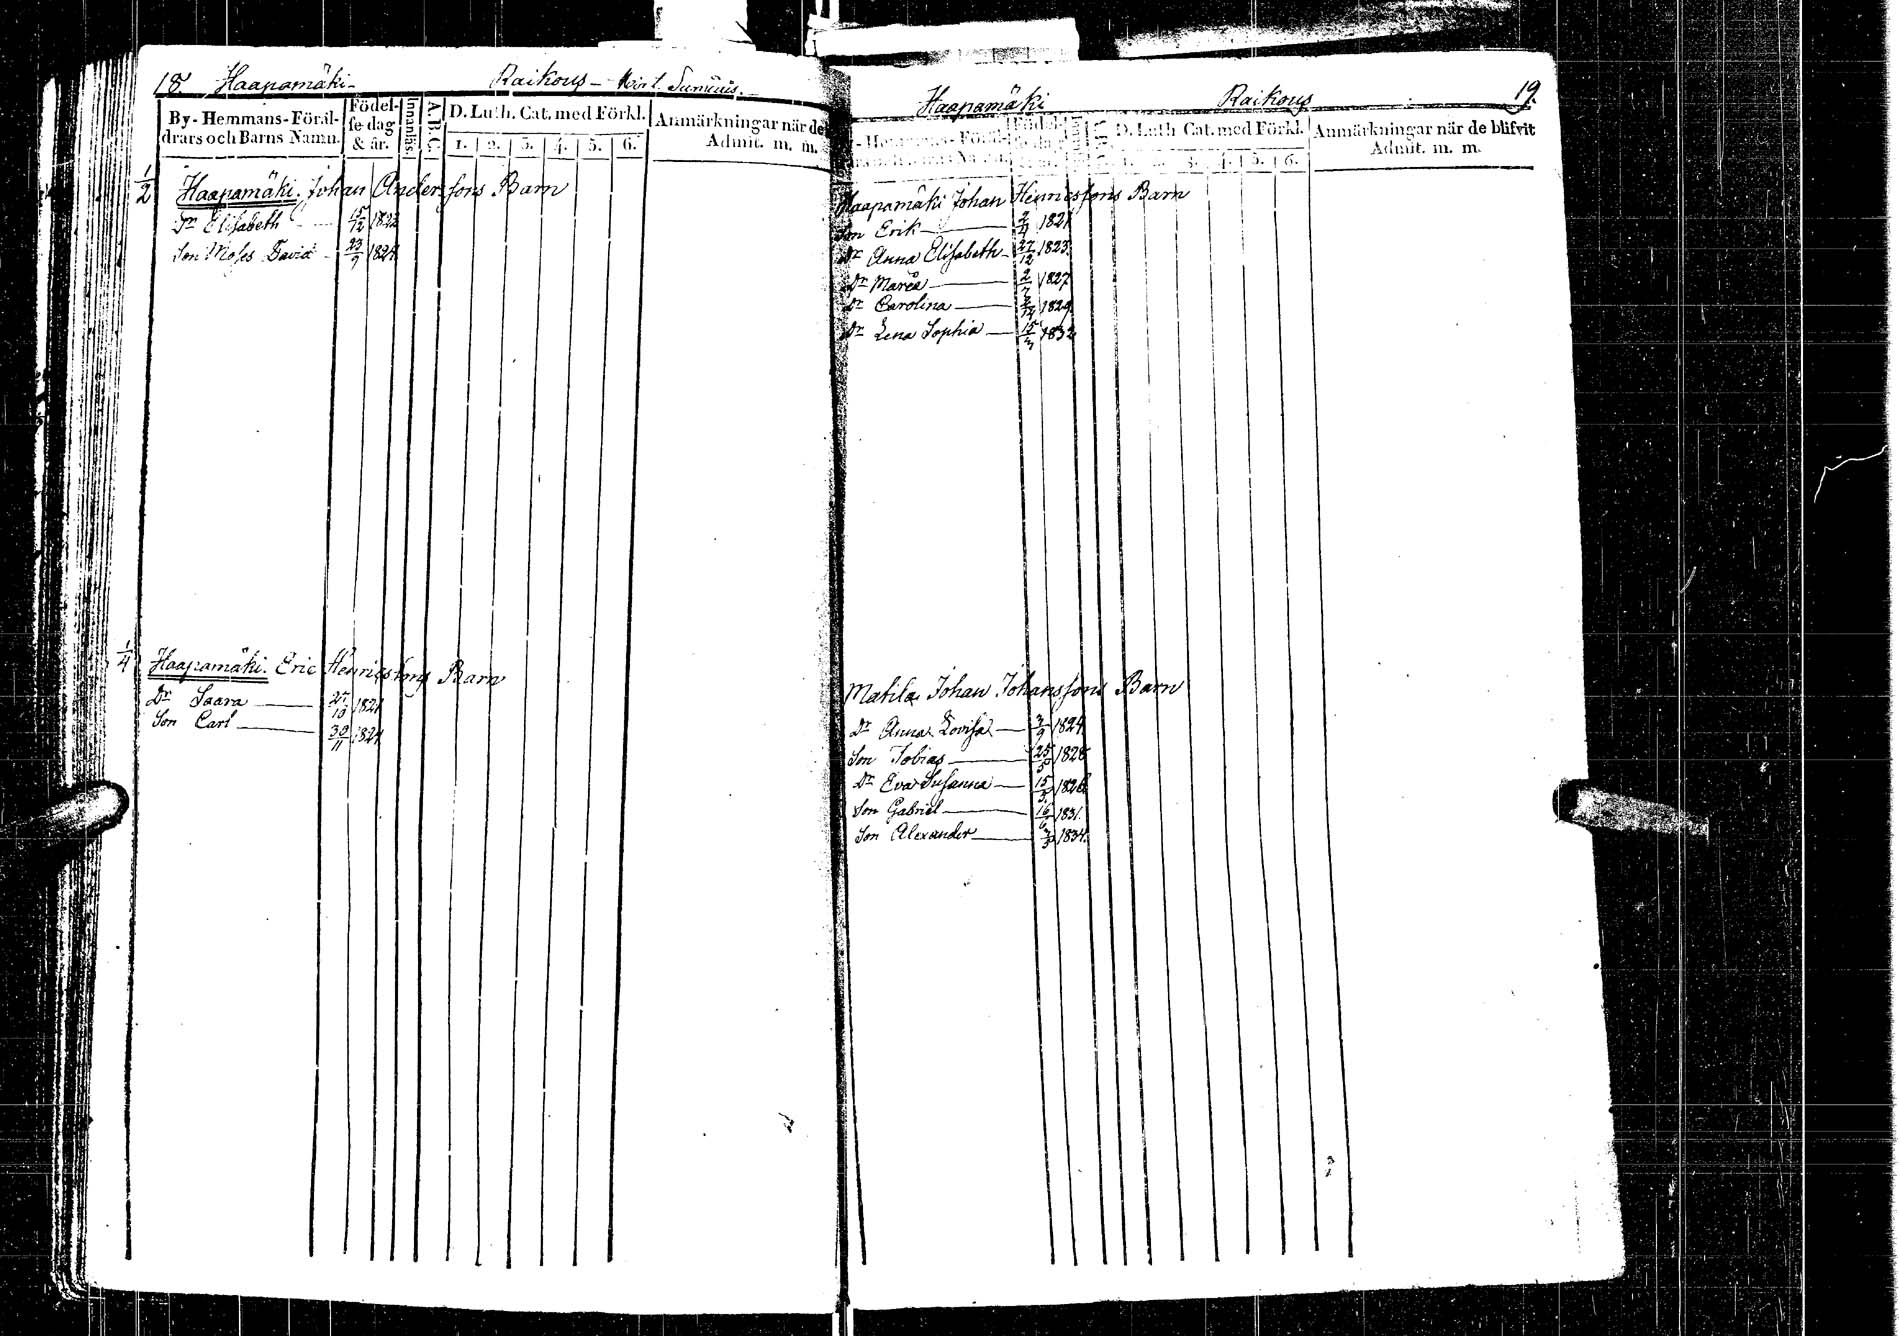 18. Haapamäki Raikous
By- Hemmans- Föräl-
drars och Barns Namn.
Födel-
se-dag
& år.
Innanläs.
A.B.C.
D. Luth. Cat. med Förkl.
1. 2. 3. 4. 5. 6.
Anmärkningar när de
Admit. m. m.
1/2 Haapamäki Johan Andersſons Barn
Dr Eliſabeth 15/12
Son Moſes David 23/9 1824
1/4 Haapamäki. Eric Henricsſons Barn
Dr Saara 1821
Son Carl 30/11 1824
Haapamäki Raikous 19.
D. Luth Cat. med Förkl.
3. 4. 5. 6.
Anmärkningar när de bliſvit
Admit. m. m.
Haapamäki Johan Henricsſons Barn
Son Erik 1821
Dr Anna Eliſabeth 27/12 1823.
Dr Maria 2/7 1827
Dr Carolina 1829.
Dr Lena Sophia 15/3 1832
Matila Johan Johansſons Barn
Dr Anna Loviſa 3/9 1824
Son Tobias 25/5
Dr Eva Suſanna 15/3.
Son Gabriel 16/6 1831.
Son Alexander 1834.